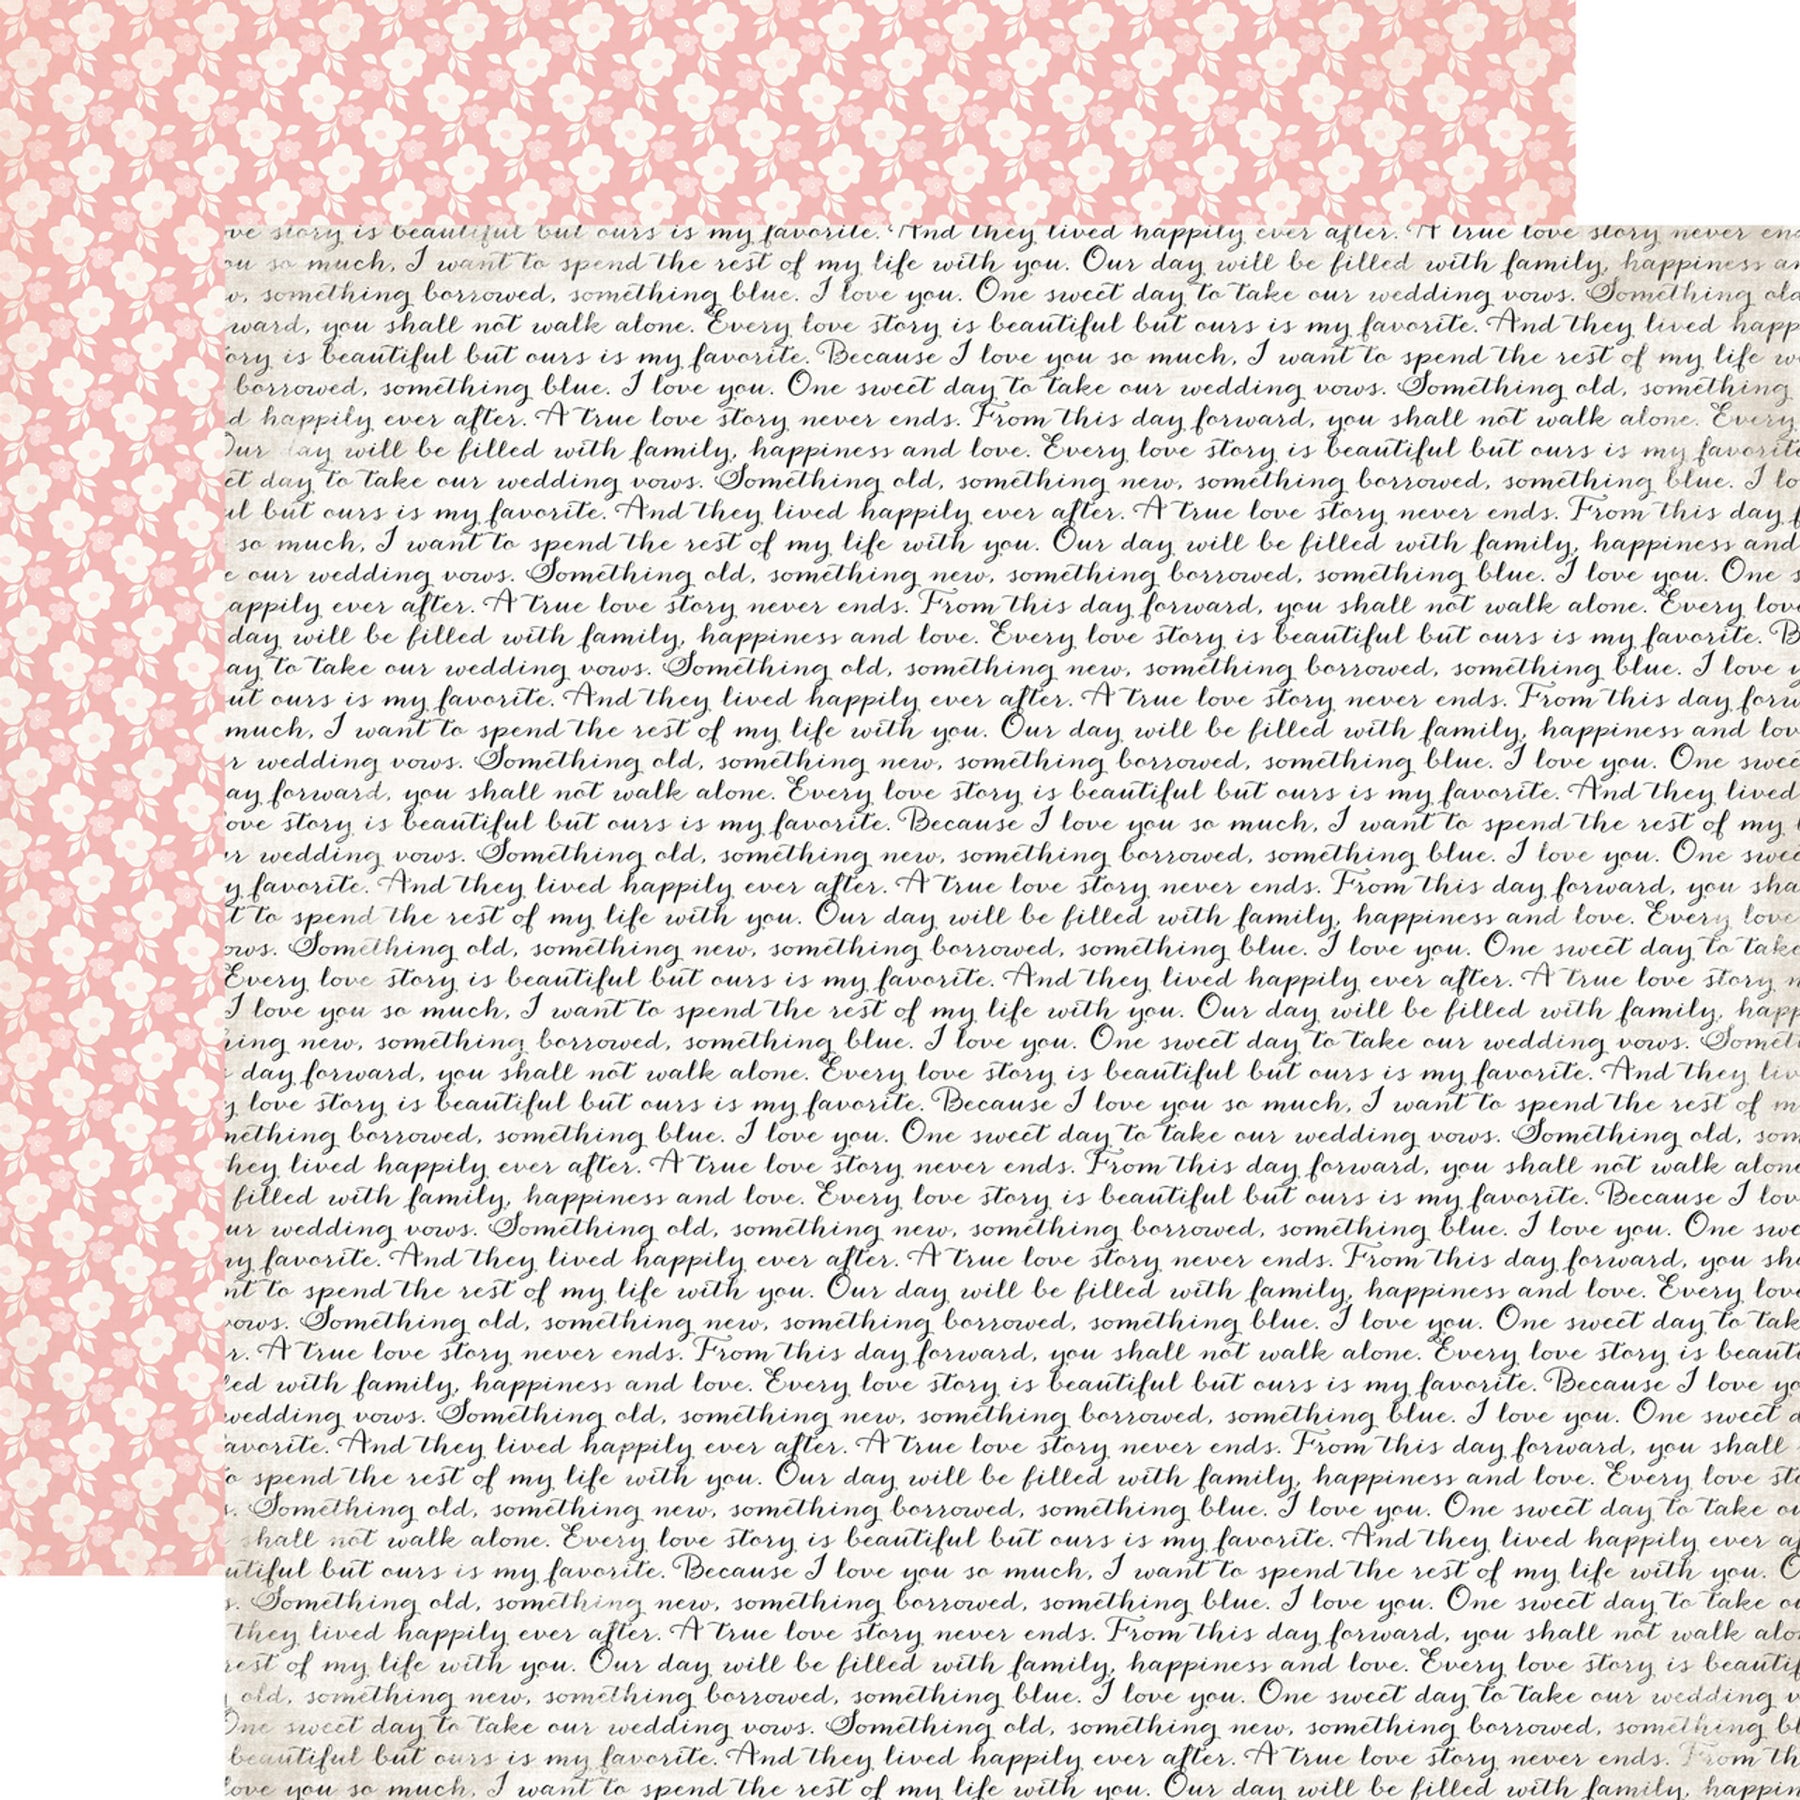 story is beautiful but ours is my favorite. And they lived happily ever after. A true love story never
so much, I want to spend the rest of my life with you. Our day will be filled with family, happiness
something borrowed, something blue. I love you. One sweet day to take our wedding vows. Something old
you shall not walk alone. Every love story is beautiful but ours is my favorite. And they lived
is beautiful but ours is my favorite. Because I love you so much, I want to spend the rest of my life
borrowed, something blue. I love you. One sweet day to take our wedding vows. Something old, something
happily ever after. A true love story never ends. From this day forward, you shall not walk alone. Every
Our day will be filled with family, happiness and love. Every love story is beautiful but ours is my favorite
day to take our wedding vows. Something old, something new, something borrowed, something blue. I
but ours is my favorite. And they lived happily ever after. A true love story never ends. From this day
so much, I want to spend the rest of my life with you. Our day will be filled with family, happiness and
our wedding vows. Something old, something new, something borrowed, something blue. I love you. One
ever after. A true love story never ends. From this day forward, you shall not walk alone. Every love
day will be filled with family, happiness and love. Every love story is beautiful but ours is my favorite.
to take our wedding vows. Something old, something new, something borrowed, something blue. I love
ours is my favorite. And they lived happily ever after. A true love story never ends. From this day
much, I want to spend the rest of my life with you. Our day will be filled with family, happiness and
wedding vows. Something old, something new, something borrowed, something blue. I love you. One
forward, you shall not walk alone. Every love story is beautiful but ours is my favorite. And they lived
story is beautiful but ours is my favorite. Because I love you so much, I want to spend the rest of my
wedding vows. Something old, something new, something borrowed, something blue. I love you. One
favorite. And they lived happily ever after. A true love story never ends. From this day forward, you
to spend the rest of my life with you. Our day will be filled with family, happiness and love. Every love
Something old, something new, something borrowed, something blue. I love you. One sweet day to take
Every love story is beautiful but ours is my favorite. And they lived happily ever after. A true love story
I love you so much, I want to spend the rest of my life with you. Our day will be filled with family,
new, something borrowed, something blue. I love you. One sweet day to take our wedding vows.
day forward, you shall not walk alone. Every love story is beautiful but ours is my favorite. And they
love story is beautiful but ours is my favorite. Because I love you so much, I want to spend the rest of
borrowed, something blue. I love you. One sweet day to take our wedding vows. Something old,
lived happily ever after. A true love story never ends. From this day forward, you shall not walk alone
filled with family, happiness and love. Every love story is beautiful but ours is my favorite. Because I
wedding vows. Something old, something new, something borrowed, something blue. I love you. One
favorite. And they lived happily ever after. A true love story never ends. From this day forward, you
to spend the rest of my life with you. Our day will be filled with family, happiness and love. Every love
Something old, something new, something borrowed, something blue. I love you. One sweet day to
A true love story never ends. From this day forward, you shall not walk alone. Every love story is
with family, happiness and love. Every love story is beautiful but ours is my favorite. Because I love
wedding vows. Something old, something new, something borrowed, something blue. I love you. One sweet
And they lived happily ever after. A true love story never ends. From this day forward, you shall
spend the rest of my life with you. Our day will be filled with family, happiness and love. Every love
Something old, something new, something borrowed, something blue. I love you. One sweet day to take
shall not walk alone. Every love story is beautiful but ours is my favorite. And they lived happily ever
but ours is my favorite. Because I love you so much, I want to spend the rest of my life with you.
Something old, something new, something borrowed, something blue. I love you. One sweet day to take
they lived happily ever after. A true love story never ends. From this day forward, you shall not walk
rest of my life with you. Our day will be filled with family, happiness and love. Every love story is
old, something new, something borrowed, something blue. I love you. One sweet day to take our wedding
One sweet day to take our wedding vows. Something old, something new, something borrowed, something
beautiful but ours is my favorite. And they lived happily ever after. A true love story never ends. From
love you so much, I want to spend the rest of my life with you. Our day will be filled with family,